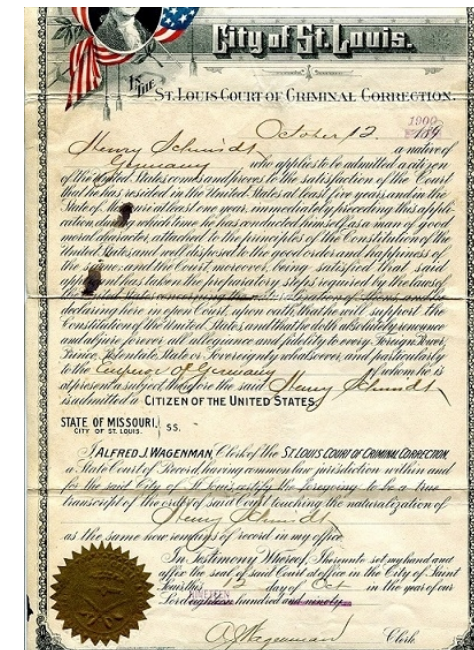 City of St. Louis.
IN THE ST. LOUIS COURT OF CRIMINAL CORRECTION.
1900
October 12 189
Henry Schmidt a native of
Germany who applies to be admitted a citizen
of the United States comes and proves to the satisfaction of the Court
that he has resided in the United States at least five years, and in the
State of Missouri at least one year, immediately preceding this appli-
cation, during which time he has conducted himself as a man of good
moral character, attached to the principles of the Constitution of the
United States, and well disposed to the good order and happiness of
the same; and the Court, moreover, being satisfied that said
applicant has taken the preparatory steps required by the laws of
declaring here in open Court, upon oath, that he will support the
Constitution of the United States, and that he doth absolutely renounce
and abjure forever all allegiance and fidelity to every Foreign Power,
Prince, Potentate, State or Sovereignty whatsoever, and particularly
to the Emperor of Germany of whom he is
at present a subject, therefore the said Henry Schmidt
is admitted a CITIZEN OF THE UNITED STATES.
STATE OF MISSOURI, } SS.
CITY OF ST. LOUIS.
I, ALFRED J. WAGENMAN, Clerk of the ST. LOUIS COURT OF CRIMINAL CORRECTION
a State Court of Record, having common law jurisdiction within and
for the said City of St. Louis, certify the foregoing to be a true
transcript of the order of said Court touching the naturalization of
Henry Schmidt
as the same now remains of record in my office.
In Testimony Whereof, I hereunto set my hand and
affix the seal of said Court at office in the City of Saint
Louis this day of Oct in the year of our
NINETEEN
Lord eighteen hundred and ninety
A J Wagenman Clerk.